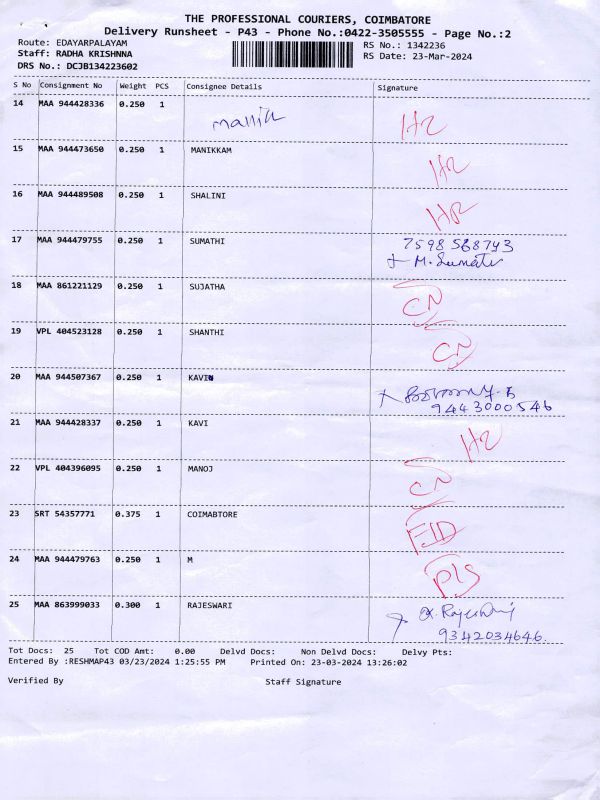 THE PROFESSIONAL COURIERS, COIMBATORE
Delivery Runsheet - P43 - Phone No.:0422-3505555 - Page No.:2
Route: EDAYARPALAYAM
Staff: RADHA KRISHNNA
DRS No.: DCJB134223602
RS No.: 1342236
RS Date: 23-Mar-2024
S No Consignment No Weight PCS Consignee Details Signature
14 MAA 944428336 0.250 1 HR
15 MAA 944473650 0.250 1 MANIKKAM HR
16 MAA 944489508 0.250 1 SHALINI HR
17 MAA 944479755 0.250 1 SUMATHI 7598 568743
M.
18 MAA 861221129 0.250 1 SUJATHA CN
19 VPL 404523128 0.250 1 SHANTHI CN
20 MAA 944507367 0.250 1 KAVIN
9443000546
21 MAA 944428337 0.250 1 KAVI HR
22 VPL 404396095 0.250 1 MANOJ CN
23 SRT 54357771 0.375 1 COIMABTORE
24 MAA 944479763 0.250 1 M PLS
25 MAA 863999033 0.300 1 RAJESWARI
9342034646
Tot Docs: 25 Tot COD Amt: 0.00 Delvd Docs: Non Delvd Docs: Delvy Pts:
Entered By :RESHMAP43 03/23/2024 1:25:55 PM Printed On: 23-03-2024 13:26:02
Verified By Staff Signature